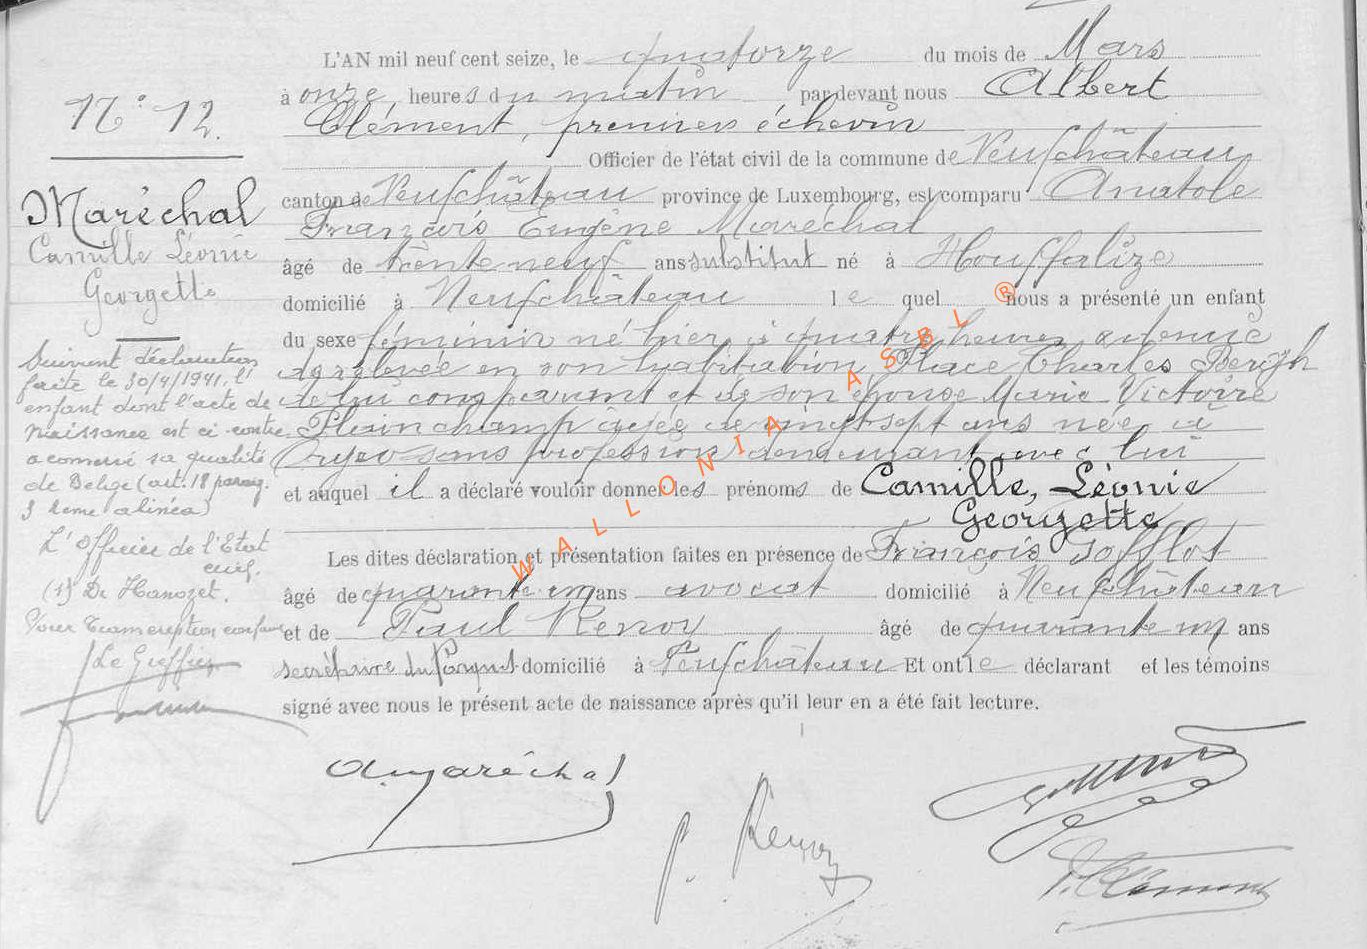 N° 12.
Maréchal
Camille Léonie
Georgette
Suivant déclaration
faite le 30/4/1941, l'
enfant dont l'acte de
naissance est ci-contre
a conservé sa qualité
de Belge (art. 18 parag.
2eme alinéa)
L'officier de l'Etat
civil.
(s) De Hanozet.
Pour transcription conforme
Le Greffier
L'AN mil neuf cent seize, le quatorze du mois de Mars
à onze heures du matin par devant nous Albert
Clément, premier échevin
Officier de l'état civil de la commune de Neufchâteau
canton de Neufchâteau province de Luxembourg, est comparu Anatole
François Eugène Maréchal
âgé de trente neuf ans substitut né à Houffalize
domicilié à Neufchâteau lequel nous a présenté un enfant
du sexe féminin né hier, à quatre heures
relevée en son habitation, Place Charles Bergh
de lui comparant et de son épouse Marie Victoire
Plainchamp âgée de vingt sept ans née à
sans profession demeurant avec lui
et auquel il a déclaré vouloir donner les prénoms de Camille, Léonie
Georgette
Les dites déclaration et présentation faites en présence de François
âgé de quarante un ans avocat domicilié à Neufchâteau
et de Paul Renoy âgé de quarante un ans
secrétaire du Parquet domicilié à Neufchâteau Et ont le déclarant et les témoins
signé avec nous le présent acte de naissance après qu'il leur en a été fait lecture.
WALLONIA ASBL ®
A. Maréchal
P. Renoy
A. Clément